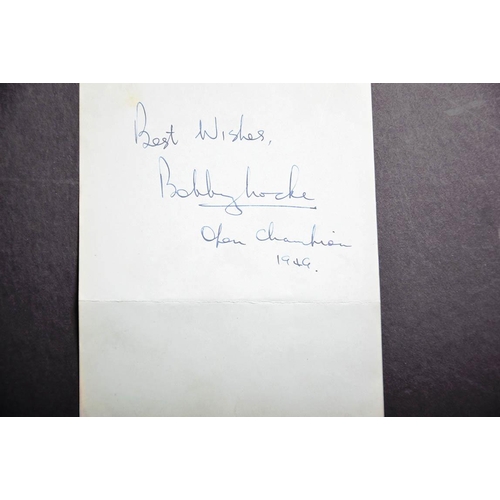 Best Wishes,
Bobby Locke
Open Champion
1949.